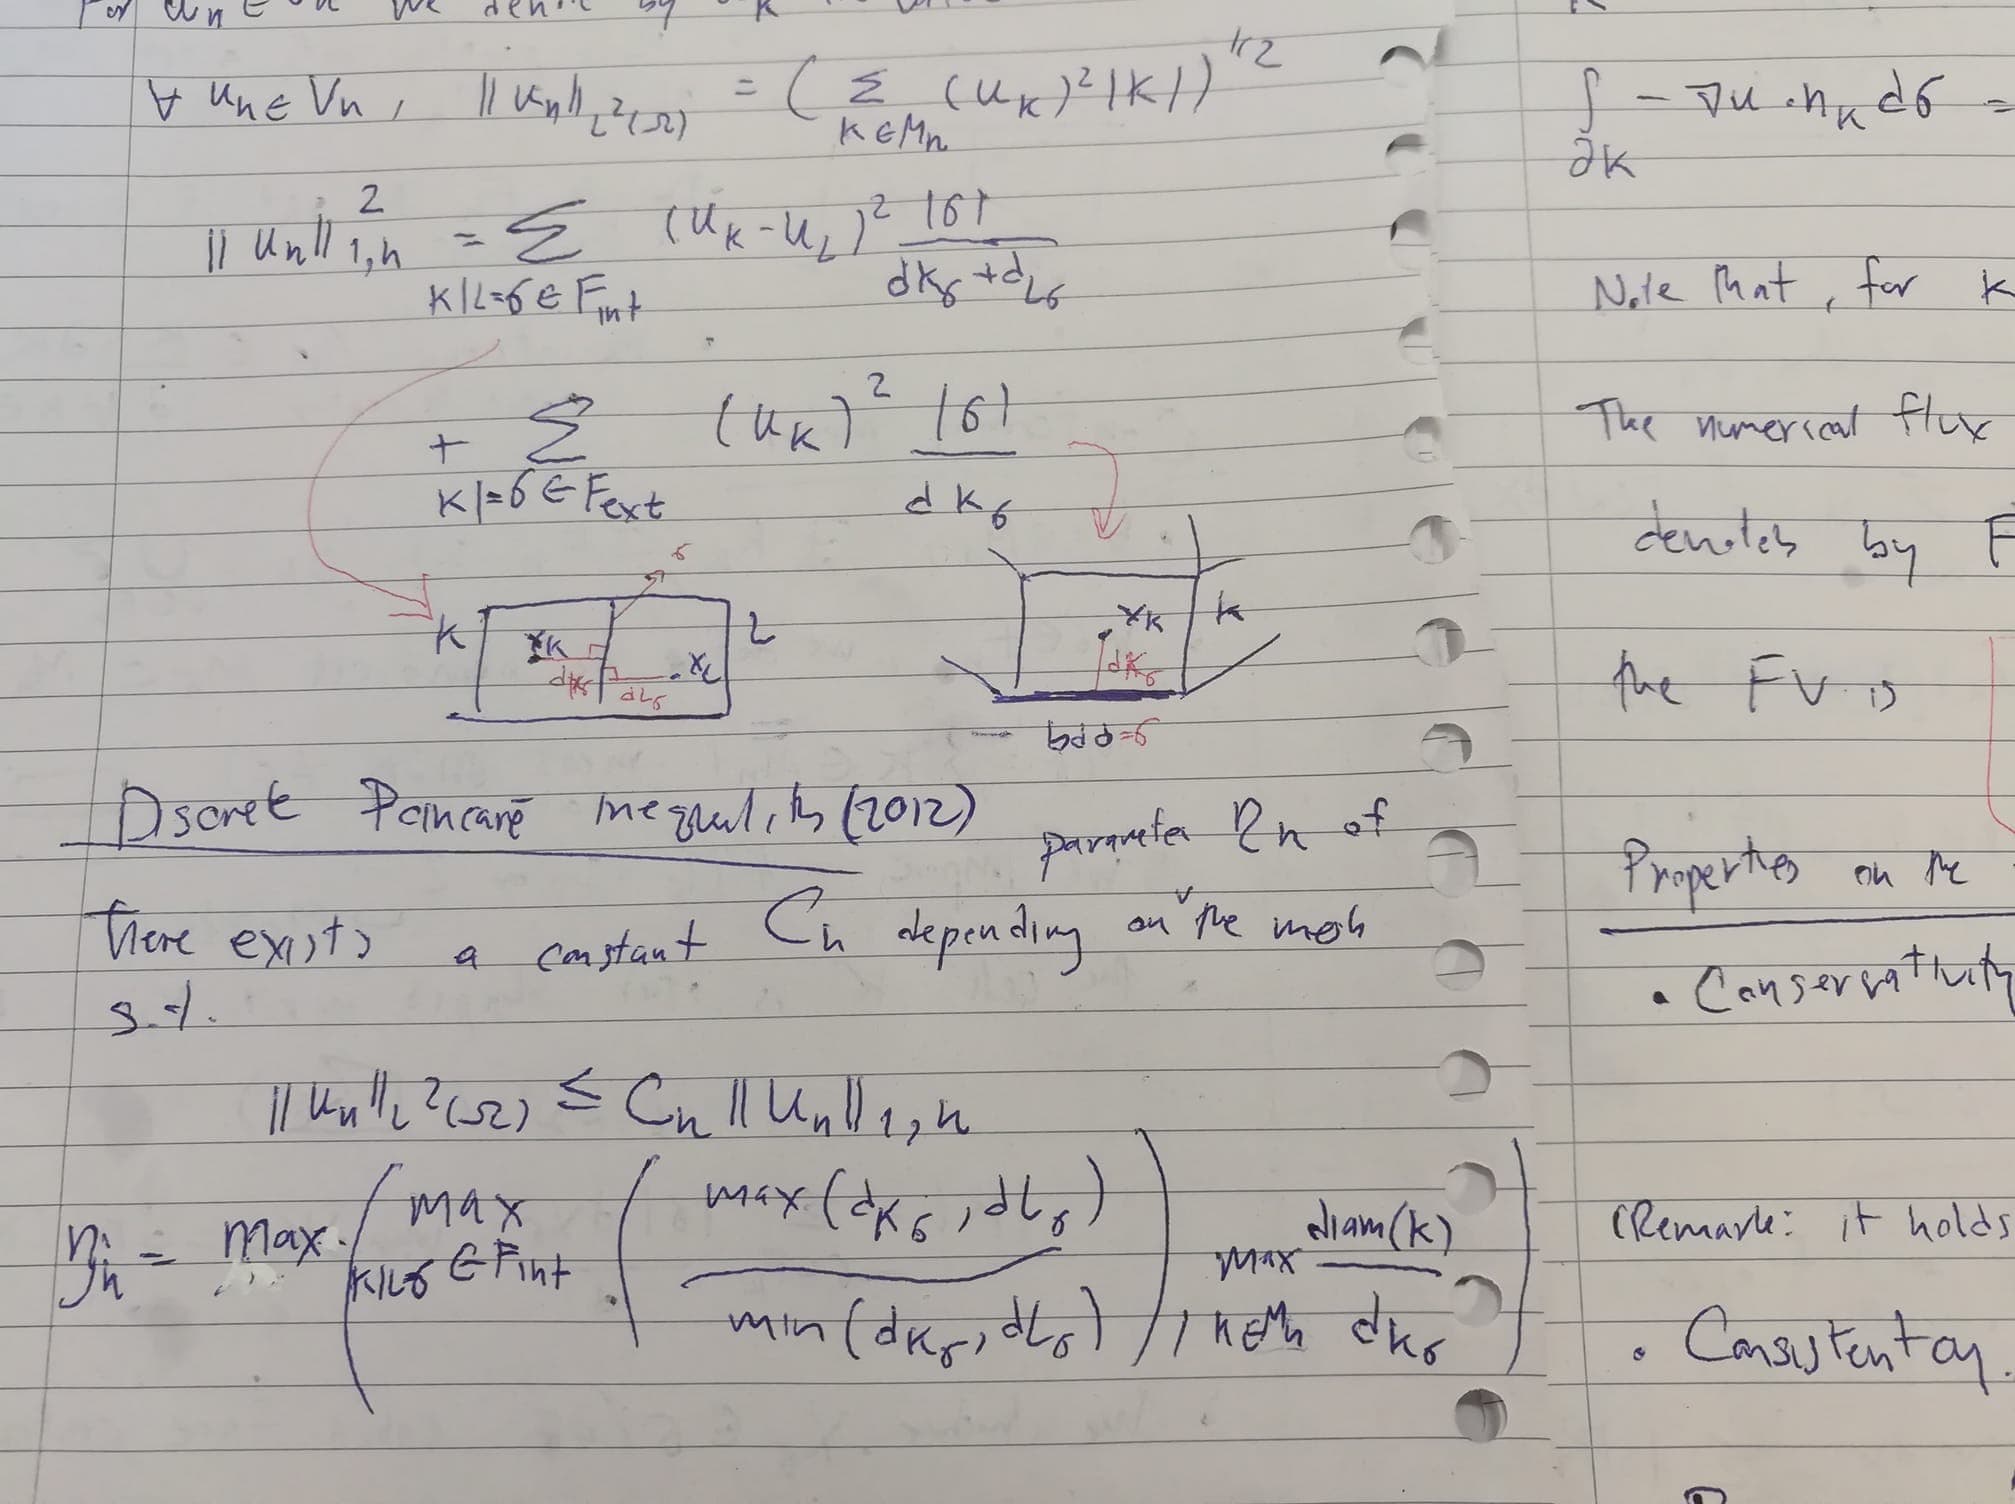 For un ∈ Vn we denote by uK the value
∀ un ∈ Vn, ||un||L²(Ω) = ( Σ K∈Mn (uK)²|K| )^1/2
||un||²1,n = Σ K|L=σ∈Fint (uK-uL)² |σ| / dKσ+dLσ
+ Σ K|=σ∈Fext (uK)² |σ| / dKσ
σ
K xK dKσ dLσ xL L
xK K dKσ
bdd=σ
Dscrete Poincaré inequality (2012)
parameter ηn of
There exists a constant Cn depending on the mesh
s.t.
||un||L²(Ω) ≤ Cn ||un||1,n
ηn = max ( max K|L=σ ∈ Fint ( max(dKσ, dLσ) / min(dKσ, dLσ) ), max K∈Mn diam(K) / dKσ )
∫∂K -∇u·nK dσ =
Note that, for K
The numerical flux
denotes by F
the FV is
Properties on the
• Conservativity
(Remark: it holds
• Consistentcy.